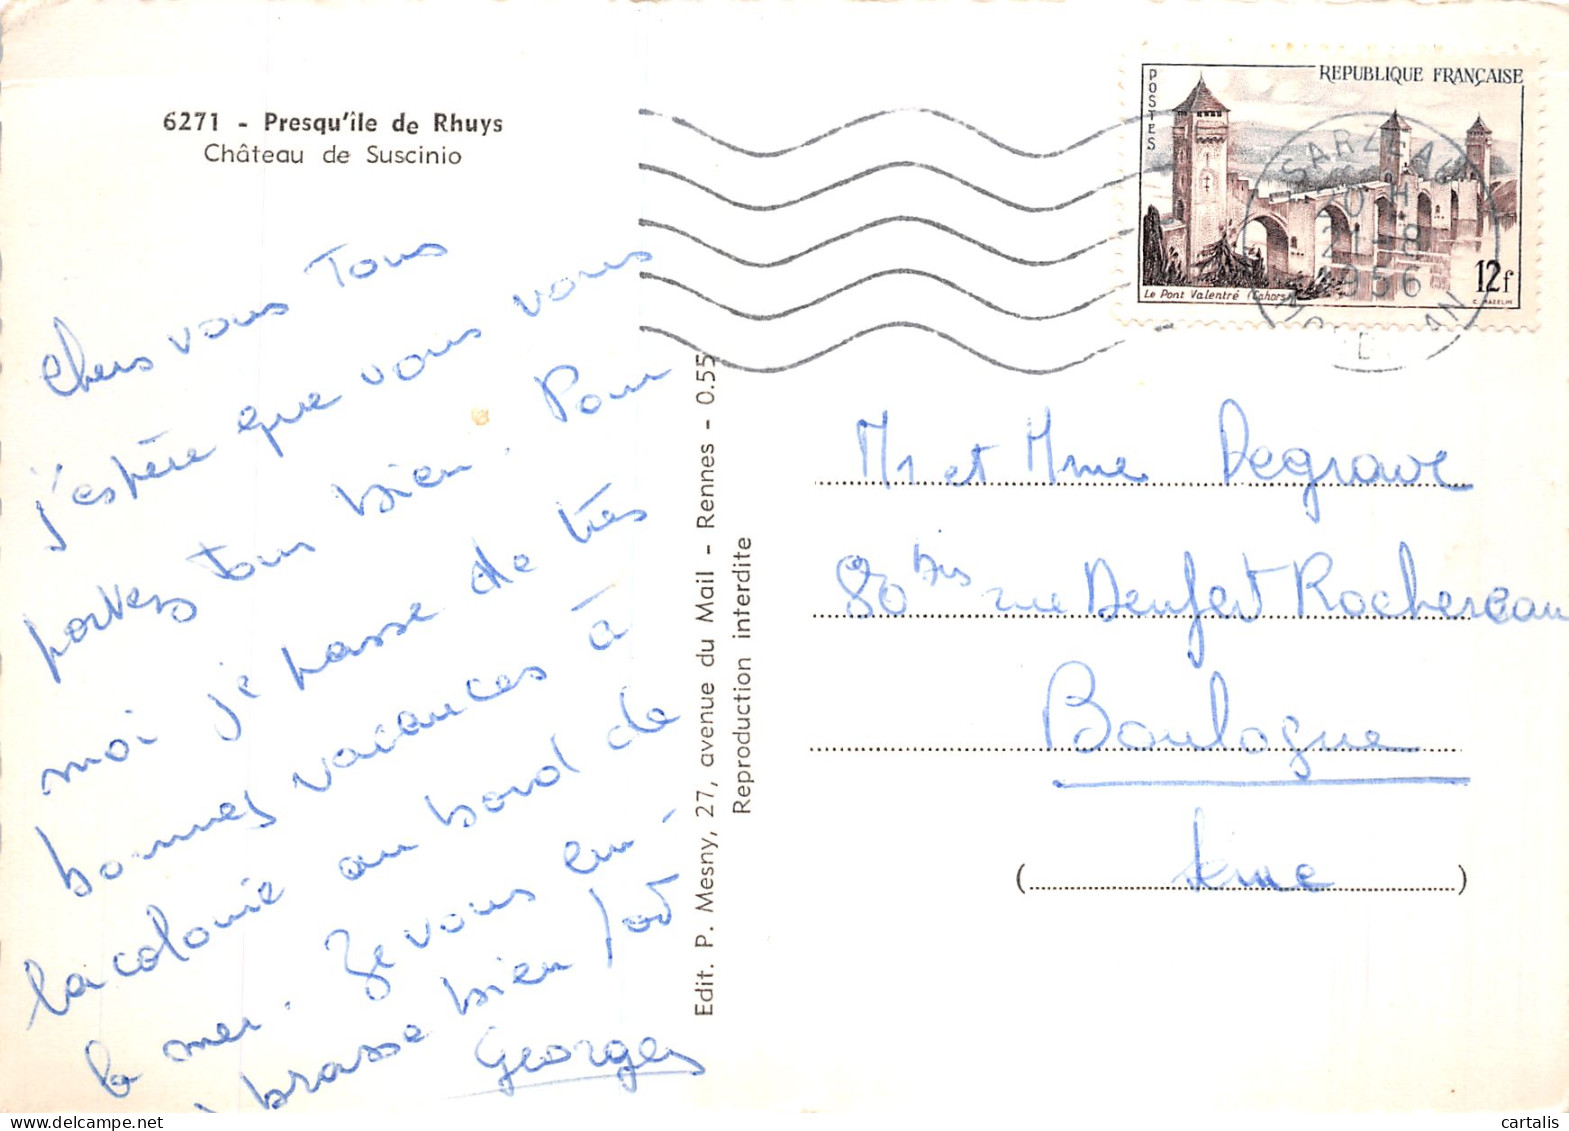 6271 - Presqu'île de Rhuys
Château de Suscinio
Chers vous Tous
j'espère que vous vous
portez tous bien. Pour
moi je passe de très
bonnes vacances à
la colonie au bord de
la mer. Je vous em-
brasse bien fort
Georges
Edit. P. Mesny, 27, avenue du Mail - Rennes - 0.55
Reproduction interdite
POSTES
REPUBLIQUE FRANÇAISE
Le Pont Valentré (Cahors)
12f
C. MAZELIN
SARZEAU
20 H
21-8
1956
MORBIHAN
Mr et Mme Degrave
80 bis rue Denfert Rochereau
Boulogne
(Seine)
cartalis